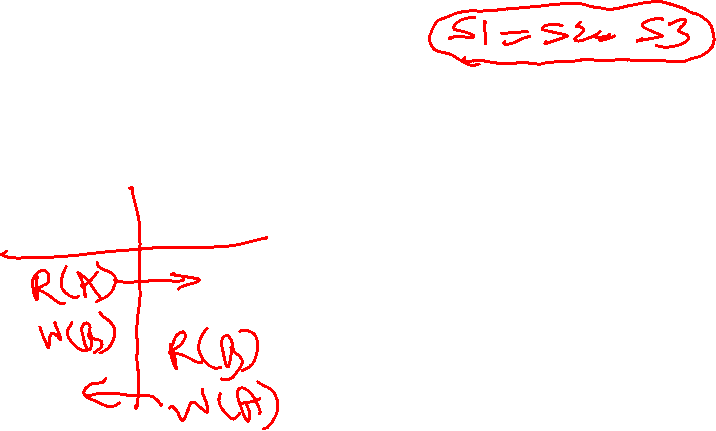 S1 = S2 S3
R(A)
W(B)
R(B)
W(A)